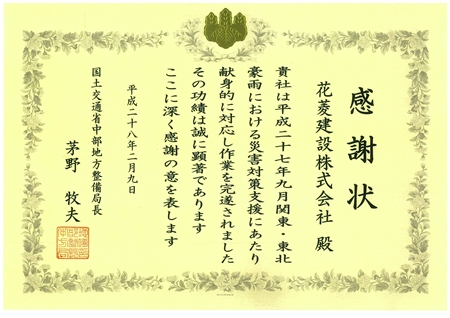 感謝状
花菱建設株式会社 殿
貴社は平成二十七年九月関東・東北
豪雨における災害対策支援にあたり
献身的に対応し作業を完遂されました
その功績は誠に顕著であります
ここに深く感謝の意を表します
平成二十八年二月九日
国土交通省中部地方整備局長
茅野 牧夫